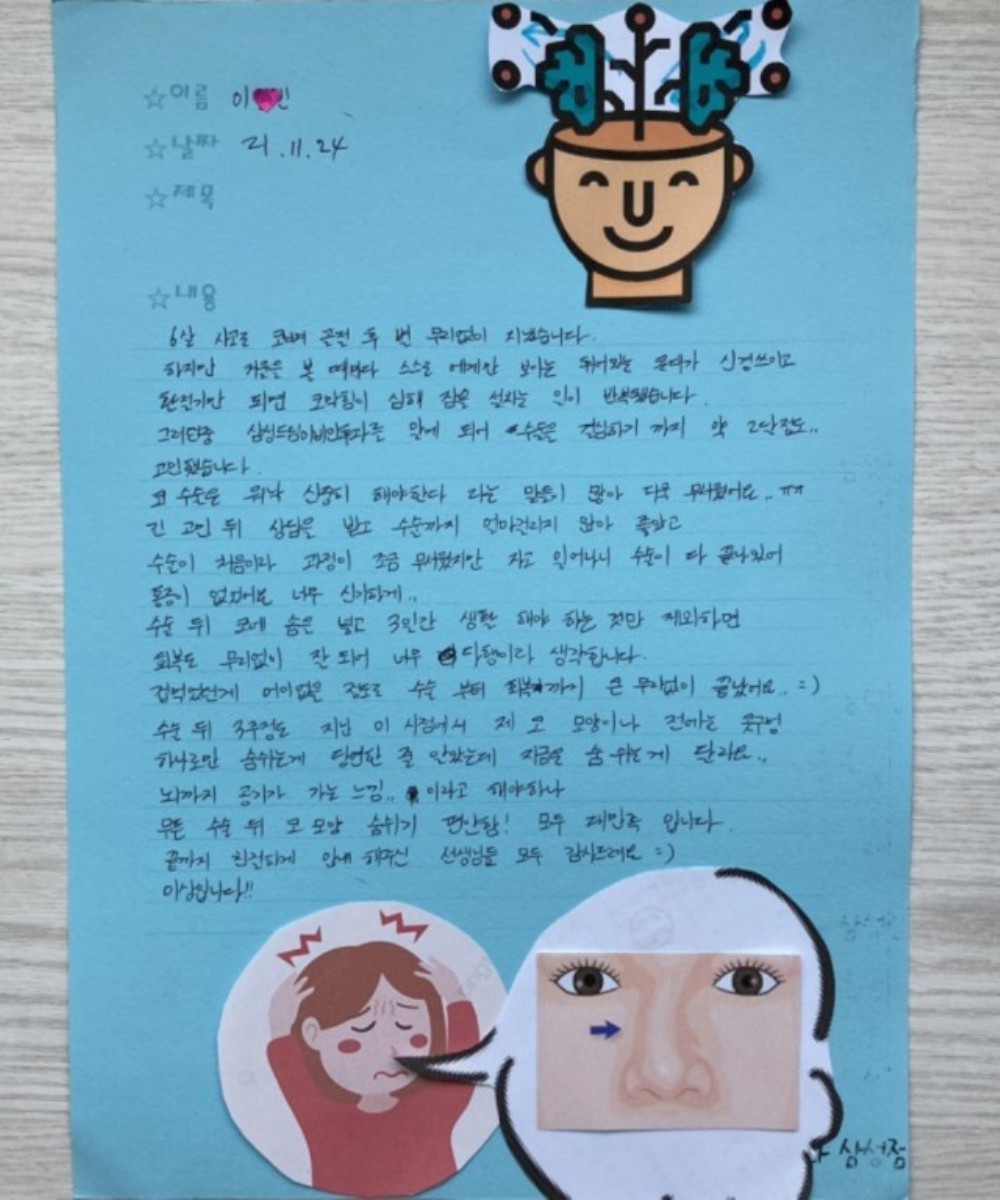 ☆이름 이
☆날짜 21.11.24
☆제목
☆내용
6살 사고로 코뼈 골절 후 별 무리없이 지냈습니다.
하지만 거울을 볼 때마다 스스로 에게만 보이는 튀어나온 콧대가 신경쓰이고
환절기만 되면 코막힘이 심해 잠을 설치는 일이 반복됐습니다.
그러던중 삼성드림이비인후과를 알게 되어 수술을 결심하기 까지 약 2달정도..
고민했습니다.
코 수술은 워낙 신중히 해야한다 라는 말들이 많아 더욱 무서웠어요.. ㅠㅠ
긴 고민 뒤 상담을 받고 수술까지 얼마걸리지 않아 좋았고
수술이 처음이라 과정이 조금 무서웠지만 자고 일어나니 수술이 다 끝나있어
통증이 없었어요 너무 신기하게..
수술 뒤 코에 솜을 넣고 3일간 생활 해야 하는 것만 제외하면
회복도 무리없이 잘 되어 너무 다행이라 생각합니다.
겁먹었던게 어이없을 정도로 수술 부터 회복까지 큰 무리없이 끝났어요.. =)
수술 뒤 3주정도 지난 이 시점에서 제 코 모양이나 전에는 콧구멍
하나로만 숨쉬는게 당연한 줄 알았는데 지금은 숨 쉬는게 달라요..
뇌까지 공기가 가는 느낌.. 이라고 해야하나
무튼 수술 뒤 코모양 숨쉬기 편안함! 모두 대만족 입니다.
끝까지 친절하게 안내 해주신 선생님들 모두 감사드려요 =)
이상입니다!!
삼성점